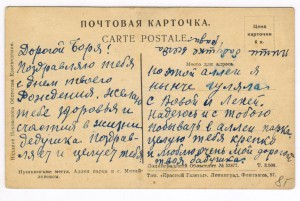 ПОЧТОВАЯ КАРТОЧКА.
CARTE POSTALE.
Цена карточки
Место для адреса.
Дорогой Боря!
Поздравляю тебя
с днем твоего
Рождения, желаю
тебе здоровья и
счастия в жизни.
Дедушка поздрав-
ляет и целует тебя
По этой аллеи я
нынче гуляла
с Вовой и Лелей.
Надеюсь и с тобою
побывать в аллеи парка,
целую тебя крепко
твоя бабушка.
Пушкинские места. Аллея парка в с. Михай-
ловском.
Ленинградский Областлит №
Тип. «Красной Газеты», Ленинград, Фонтанка, 57.